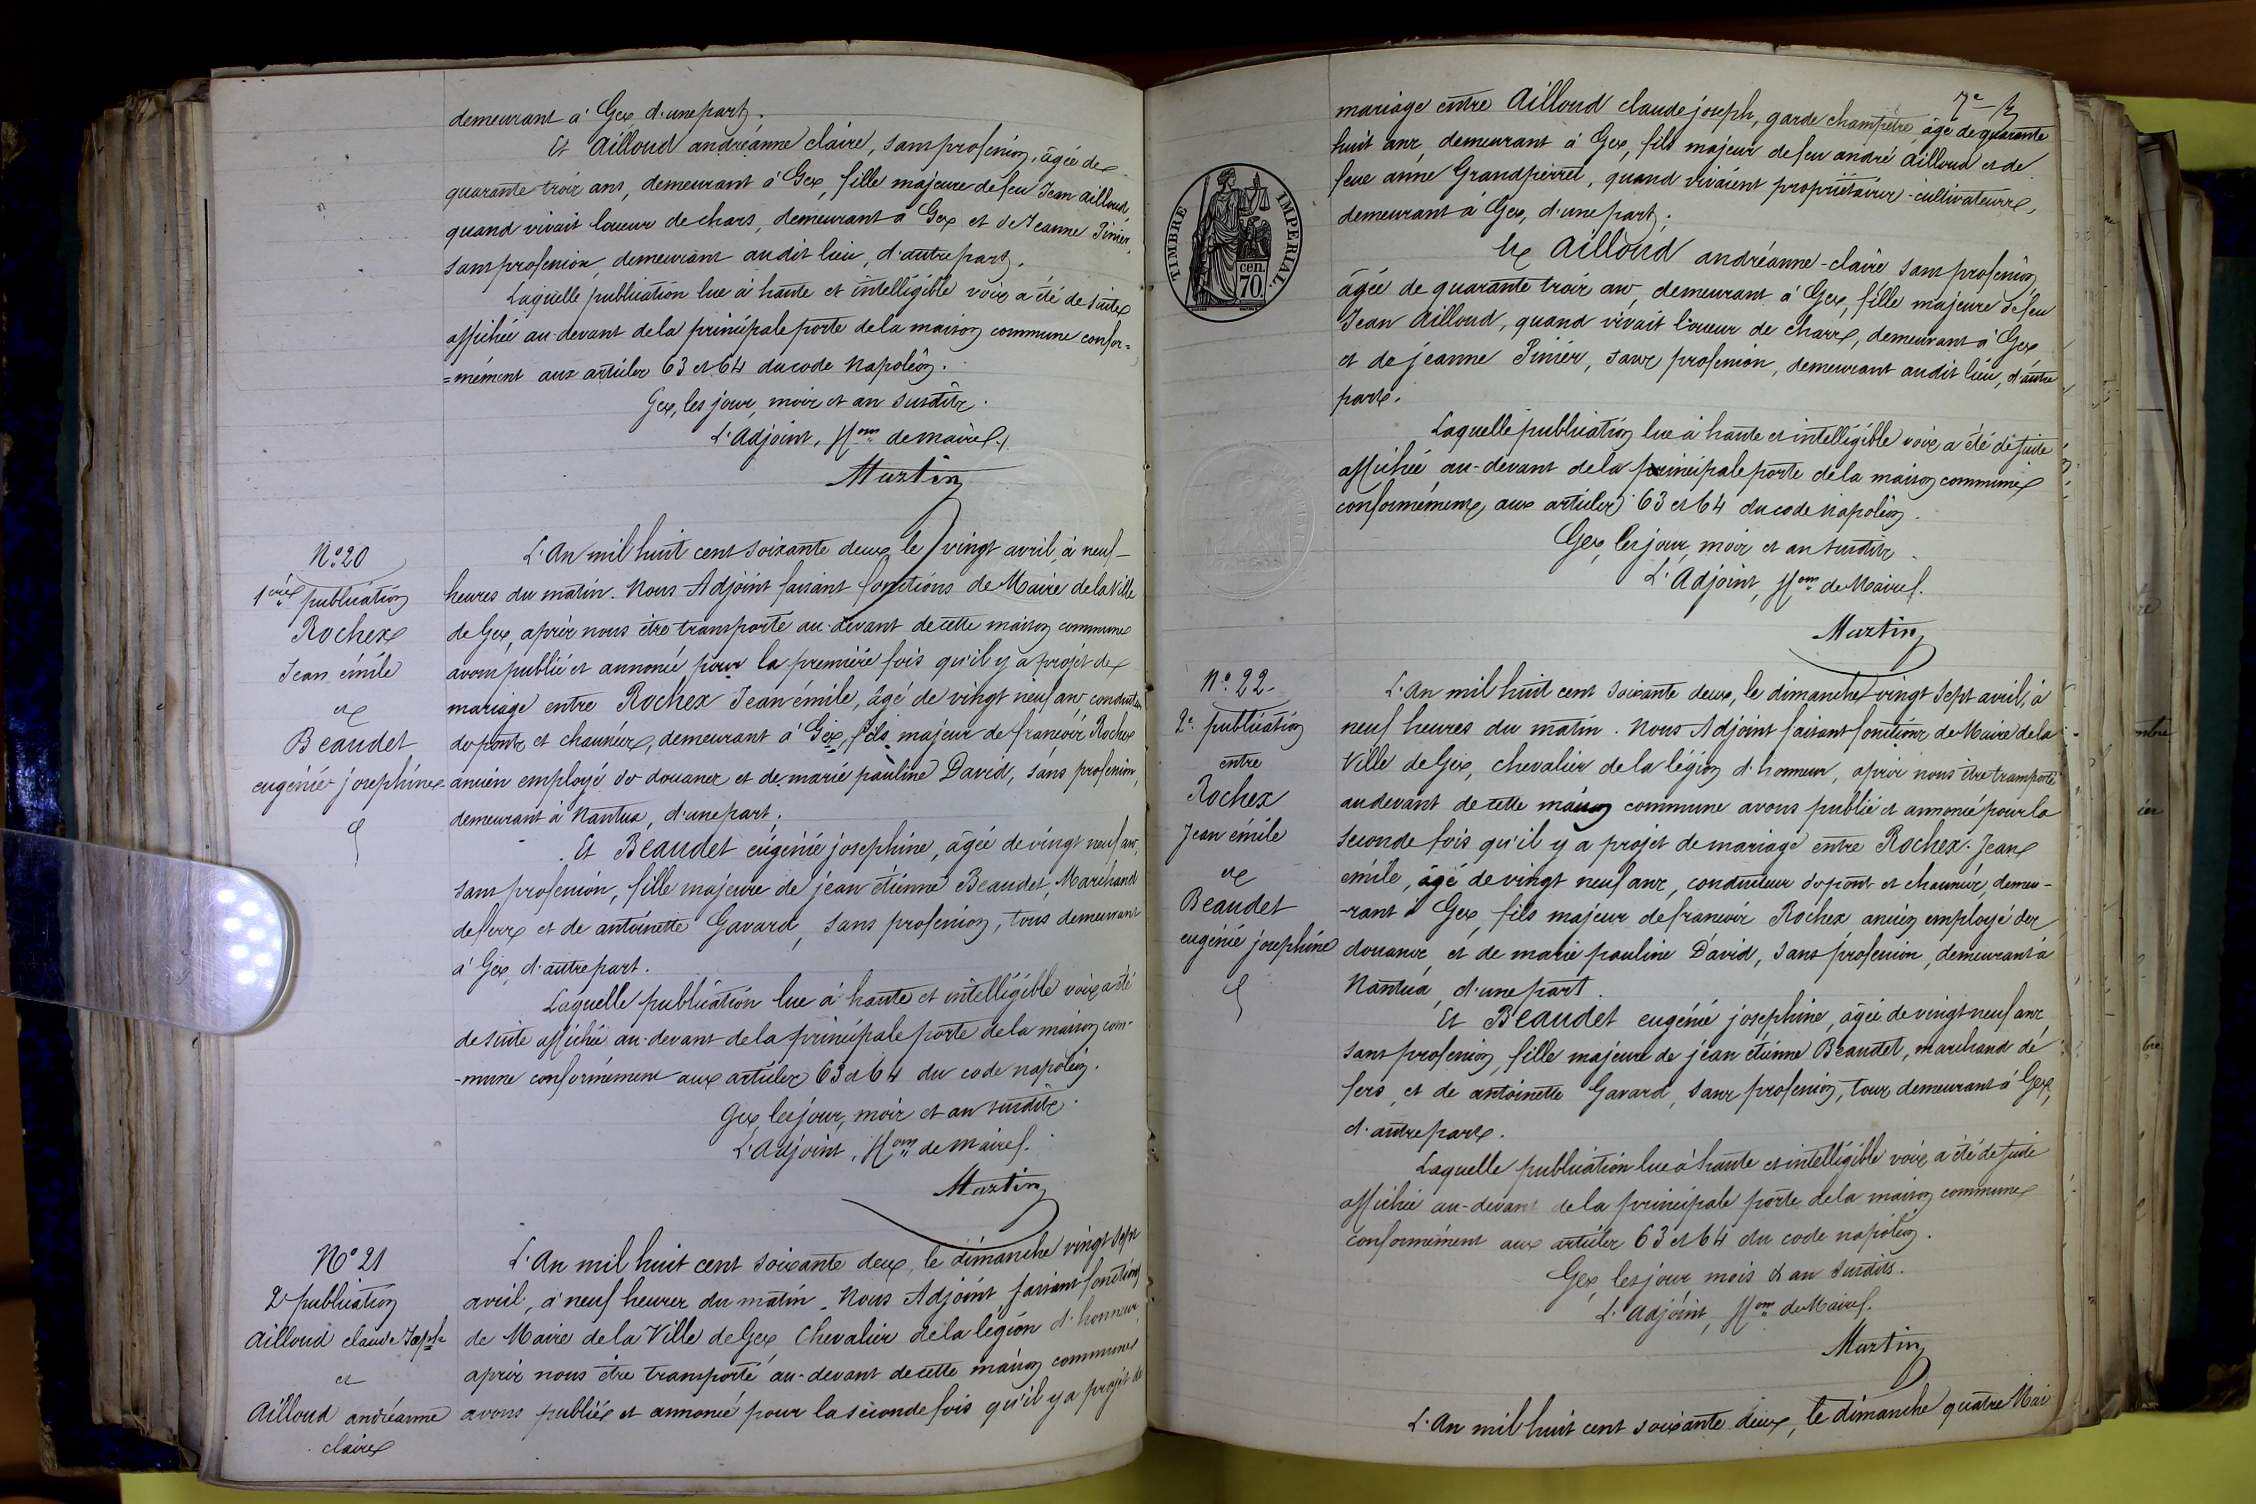 demeurant à Gex d'une part.
Et Ailloud andréanne claire, sans profession, âgée de
quarante trois ans, demeurant à Gex, fille majeure de feu Jean ailloud,
quand vivait loueur de chars, demeurant à Gex et de Jeanne Pinier,
sans profession, demeurant audit lieu, d'autre part.
Laquelle publication lue à haute et intelligible voix a été de suite
affichée au-devant de la principale porte de la maison commune confor=
=mément aux articles 63 et 64 du code Napoléon.
Gex, les jour, mois et an susdits.
L'Adjoint, ff.ons de maire f.
Martin
N.o 20
1ère publication
Rochex
Jean émile
et
Beaudet
eugénie joséphine
L'An mil huit cent soixante deux, le vingt avril, à neuf
heures du matin. Nous Adjoint faisant fonctions de Maire de la Ville
de Gex, après nous être transporté au-devant de cette maison commune
avons publié et annoncé pour la première fois qu'il y a projet de
mariage entre Rochex Jean émile, âgé de vingt neuf ans, conducteur
de ponts et chaussées, demeurant à Gex, fils majeur de françois Rochex
ancien employé des douanes et de marie pauline David, sans profession,
demeurant à Nantua, d'une part.
Et Beaudet eugénie joséphine, âgée de vingt neuf ans,
sans profession, fille majeure de jean étienne Beaudet, Marchand
de fers et de antoinette Gavard, sans profession, tous demeurant
à Gex, d'autre part.
Laquelle publication lue à haute et intelligible voix a été
de suite affichée au-devant de la principale porte de la maison com-
-mune conformément aux articles 63 et 64 du code napoléon.
Gex, les jour, mois et an susdits.
L'Adjoint, ff.ons de maire f.
Martin
N.o 21
2e publication
Ailloud claude Joseph
et
Ailloud andréanne
claire
L'An mil huit cent soixante deux, le dimanche vingt sept
avril, à neuf heures du matin. Nous Adjoint, faisant fonctions
de Maire de la Ville de Gex, Chevalier de la légion d'honneur,
après nous être transporté au-devant de cette maison commune
avons publié et annoncé pour la seconde fois qu'il y a projet de
7e
mariage entre Ailloud claude joseph, garde champêtre, âgé de quarante
huit ans, demeurant à Gex, fils majeur de feu andré Ailloud et de
feue anne Grandpierret, quand vivaient propriétaires-cultivateurs,
demeurant à Gex, d'une part.
TIMBRE IMPERIAL.
cen.
70
Et Ailloud andréanne-claire sans profession,
âgée de quarante trois ans, demeurant à Gex, fille majeure de feu
Jean Ailloud, quand vivait loueur de chars, demeurant à Gex
et de jeanne Pinier, sans profession, demeurant audit lieu, d'autre
part.
Laquelle publication lue à haute et intelligible voix a été de suite
affichée au-devant de la principale porte de la maison commune
conformément aux articles 63 et 64 du code napoléon.
Gex, les jour, mois et an susdits.
L'Adjoint, ff.ons de Maire f.
Martin
N.o 22.
2e publication
entre
Rochex
Jean émile
et
Beaudet
eugénie joséphine
L'An mil huit cent soixante deux, le dimanche vingt sept avril, à
neuf heures du matin. Nous Adjoint faisant fonctions de Maire de la
Ville de Gex, chevalier de la légion d'honneur, après nous être transporté
au devant de cette maison commune avons publié et annoncé pour la
seconde fois qu'il y a projet de mariage entre Rochex Jean
émile, âgé de vingt neuf ans, conducteur de ponts et chaussées, demeu-
-rant à Gex, fils majeur de françois Rochex ancien employé des
douanes, et de marie pauline David, sans profession, demeurant à
Nantua, d'une part.
Et Beaudet eugénie joséphine, âgée de vingt-neuf ans,
sans profession, fille majeure de jean étienne Beaudet, marchand de
fers, et de antoinette Gavard, sans profession, tous demeurant à Gex,
d'autre part.
Laquelle publication lue à haute et intelligible voix a été de suite
affichée au-devant de la principale porte de la maison commune
conformément aux articles 63 et 64 du code napoléon.
Gex, les jour, mois & an susdits.
L'Adjoint, ff.ons de Maire f.
Martin
L'An mil huit cent soixante deux, le dimanche quatre Mai